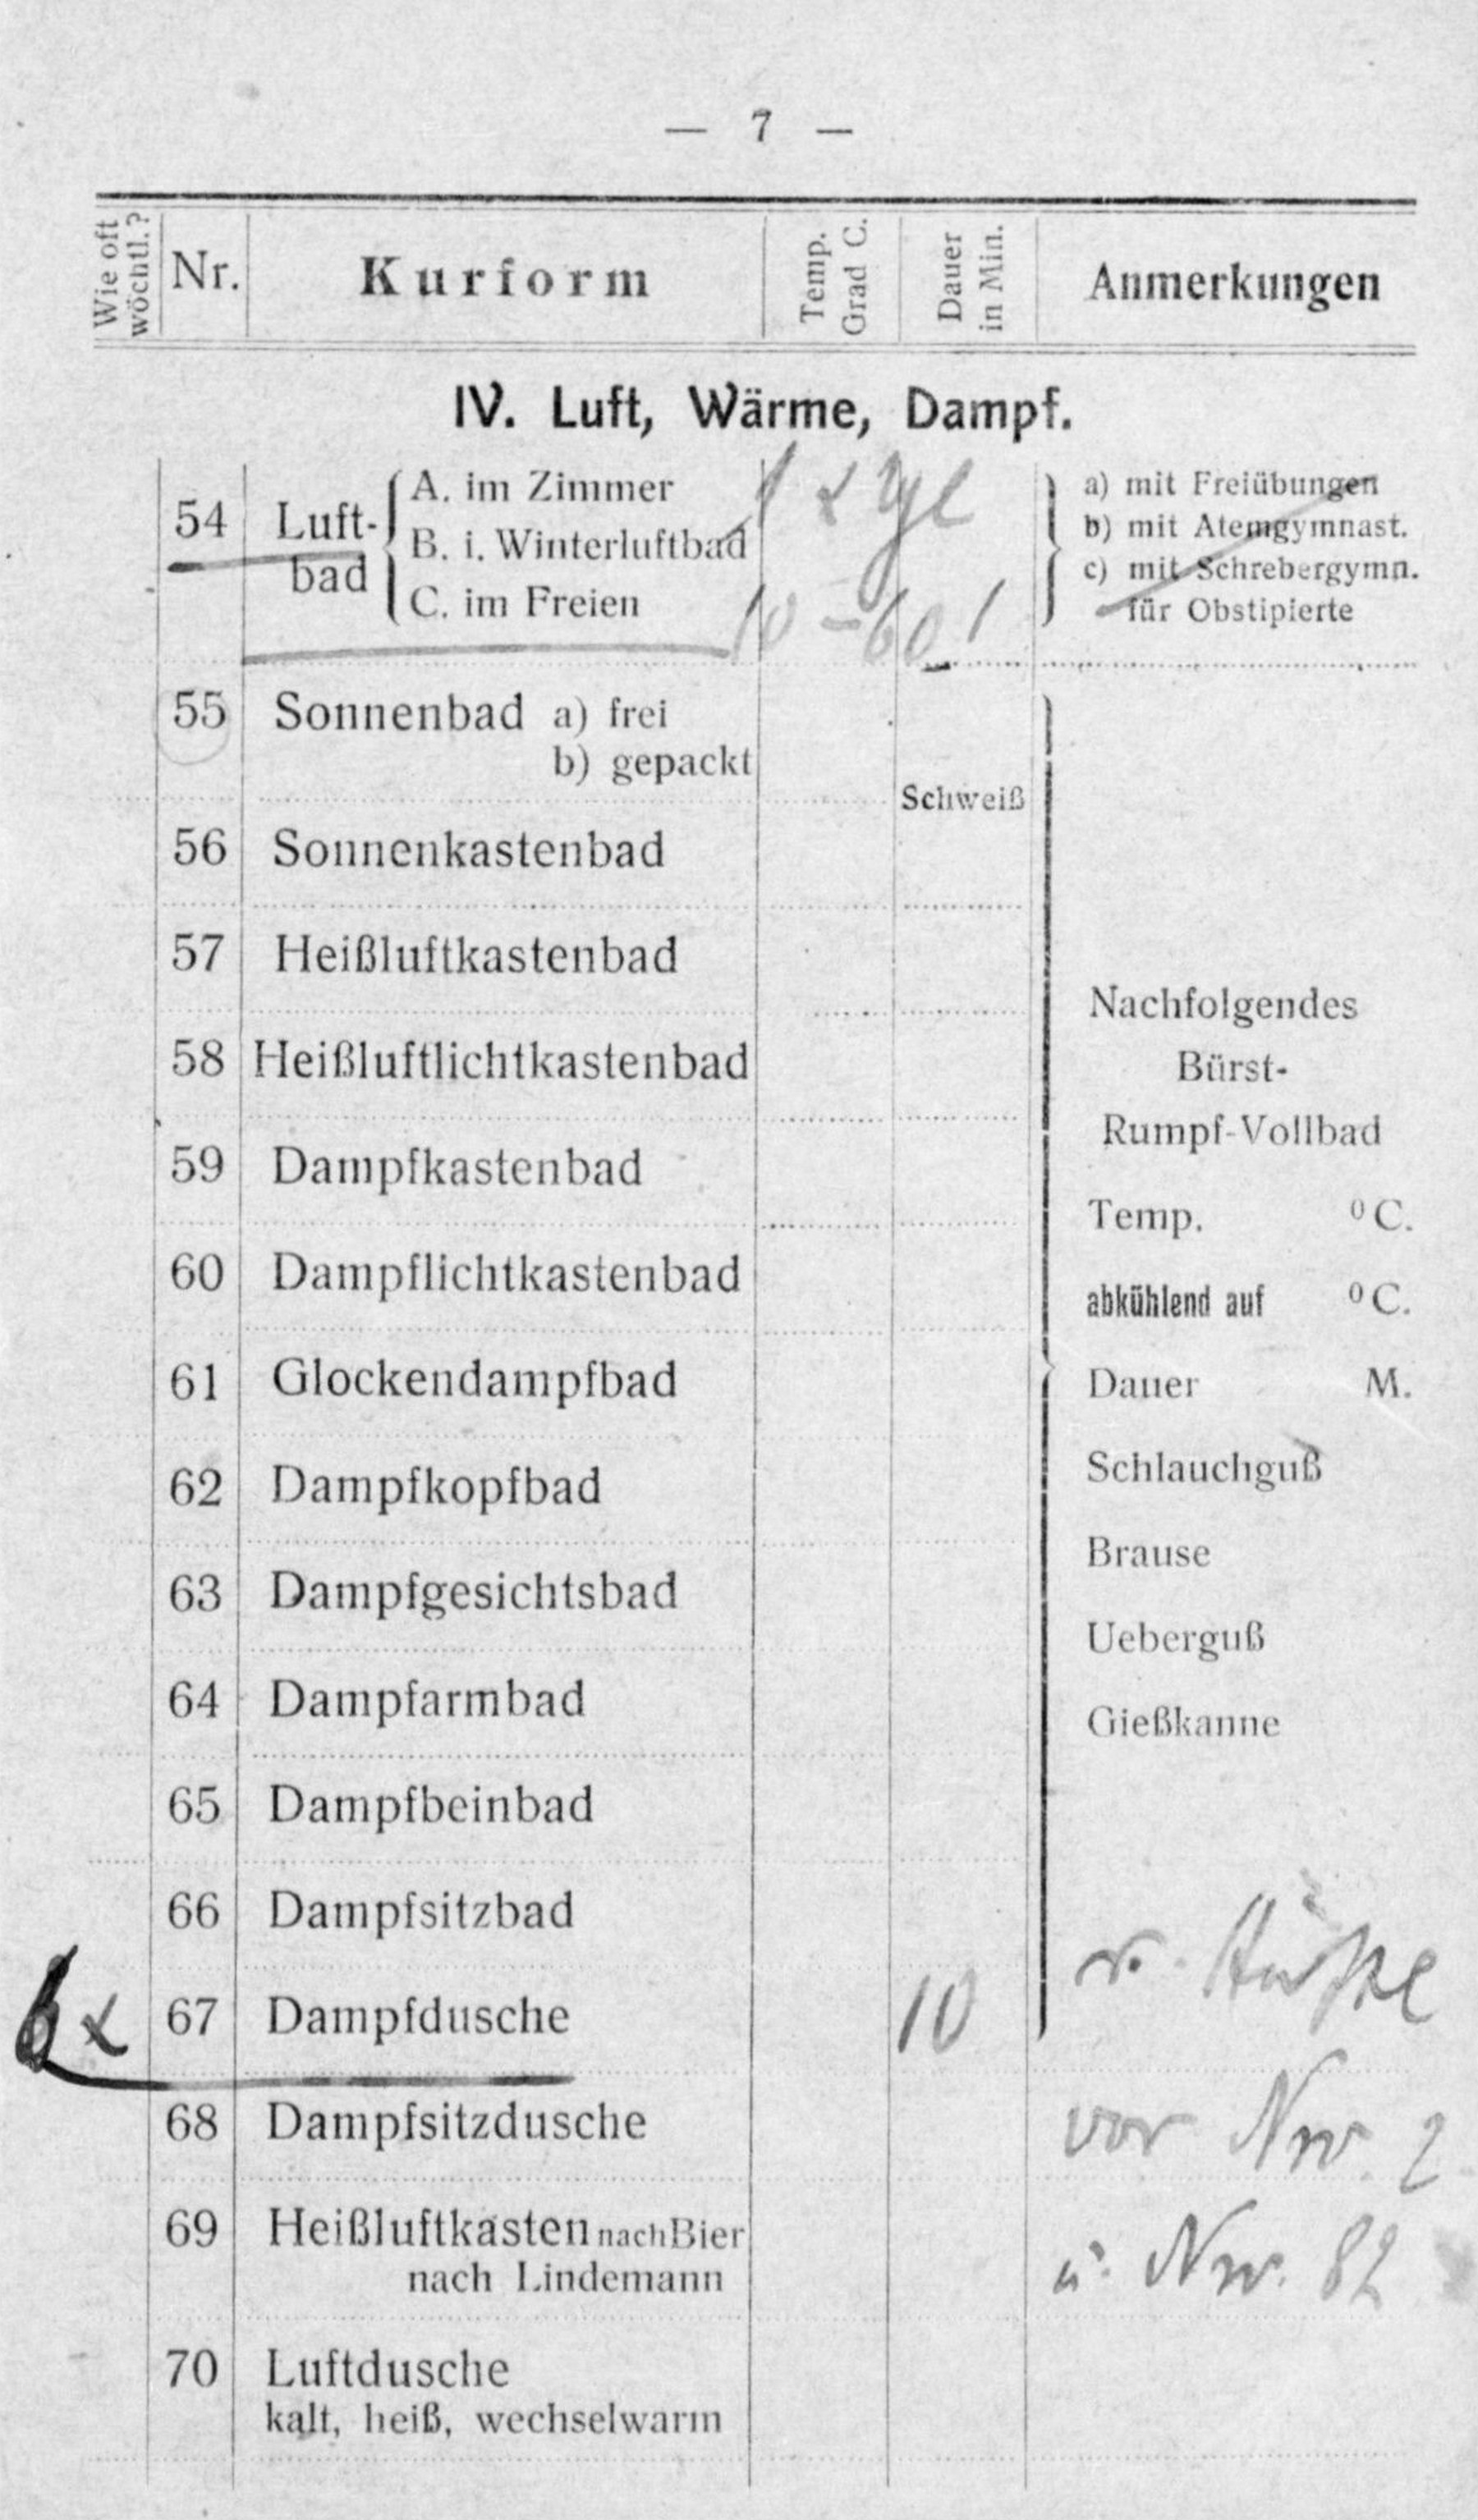 — 7 —
Wie oft wöchtl.? Nr. Kurform Temp. Grad C. Dauer in Min. Anmerkungen
IV. Luft, Wärme, Dampf.
54 Luft-bad
A. im Zimmer
B. i. Winterluftbad
C. im Freien
1 x tgl
10 – 60'
a) mit Freiübungen
b) mit Atemgymnast.
c) mit Schrebergymn.
für Obstipierte
55 Sonnenbad a) frei
b) gepackt
Schweiß
56 Sonnenkastenbad
57 Heißluftkastenbad
58 Heißluftlichtkastenbad
59 Dampfkastenbad
60 Dampflichtkastenbad
61 Glockendampfbad
62 Dampfkopfbad
63 Dampfgesichtsbad
64 Dampfarmbad
65 Dampfbeinbad
66 Dampfsitzbad
Nachfolgendes
Bürst-
Rumpf-Vollbad
Temp. ⁰C.
abkühlend auf ⁰C.
Dauer M.
Schlauchguß
Brause
Ueberguß
Gießkanne
6 x 67 Dampfdusche 10
r. Hüfte
68 Dampfsitzdusche
vor Nr. 2
69 Heißluftkasten nach Bier
nach Lindemann
u. Nr. 82
70 Luftdusche
kalt, heiß, wechselwarm